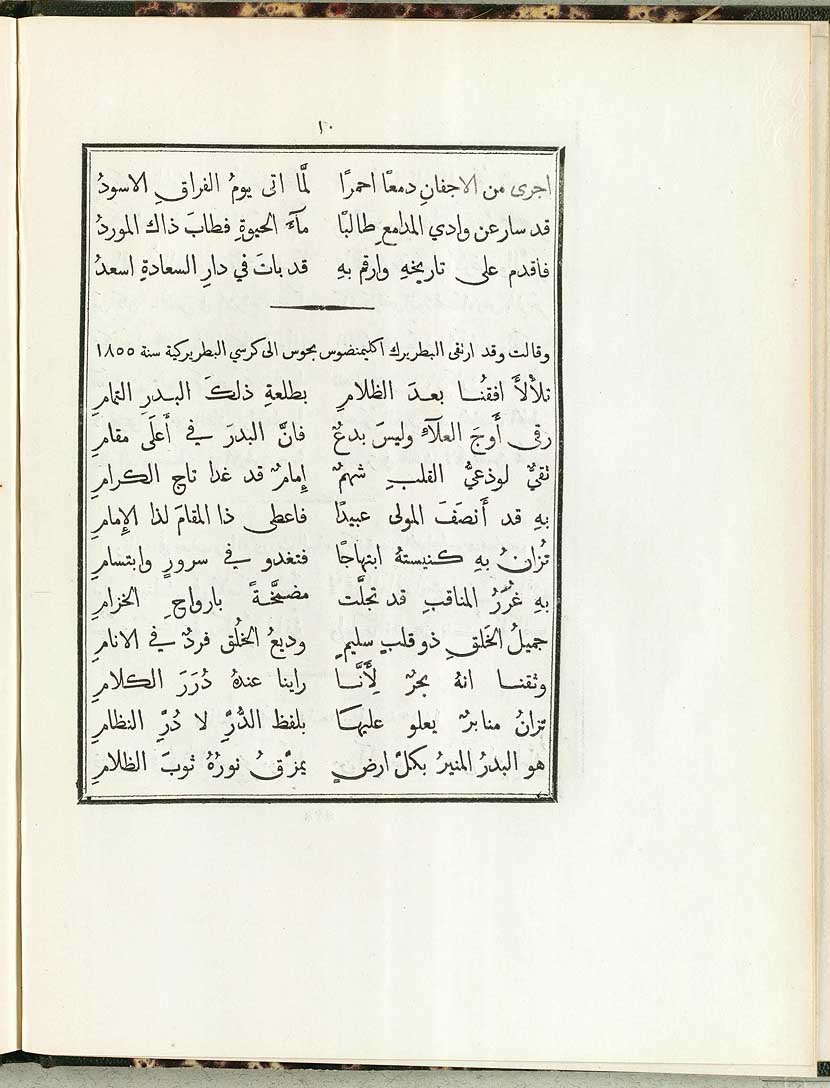 ١٠
اجرى من الاجفانِ دمعًا احمرًا لمَّا اتى يومُ الفراقِ الاسودُ
قد سار عن وادي المدامعِ طالبًا مآءَ الحيوةِ فطابَ ذاك الموردُ
فاقدم على تاريخهِ وارقم بهِ قد باتَ في دارِ السعادةِ اسعدُ
وقالت وقد ارتقى البطريرك آكليمنضوس بحوس الى كرسي البطريركية سنة ١٨٥٥
تلألأَ افقُنا بعدَ الظلامِ بطلعةِ ذلكَ البدرِ التمامِ
رقى أَوجَ العلآءِ وليسَ بدعٌ فانَّ البدرَ في أَعلَى مقامِ
تقيٌّ لوذعيُّ القلبِ شهمٌ إِمامٌ قد غدا تاج الكرامِ
بهِ قد أَنصَفَ المولى عبيدًا فاعطى ذا المقامَ لذا الإِمامِ
تُزانُ بهِ كنيستهُ ابتهاجًا فتغدو في سرورٍ وابتسامِ
بهِ غُرَرُ المناقبِ قد تجلَّت مضمَّخةً بارواحِ الخزامِ
جميلُ الخَلقِ ذو قلبٍ سليمٍ وديعُ الخُلق فردٌ في الانامِ
وثقنا انهُ بحرٌ لِأَنَّا راينا عندهُ دُرَرَ الكلامِ
تزانُ منابرٌ يعلو عليها بلفظِ الدُّرِّ لا دُرِّ النظامِ
هو البدرُ المنيرُ بكلِّ ارضٍ يمزّقُ نورُهُ ثوبَ الظلامِ